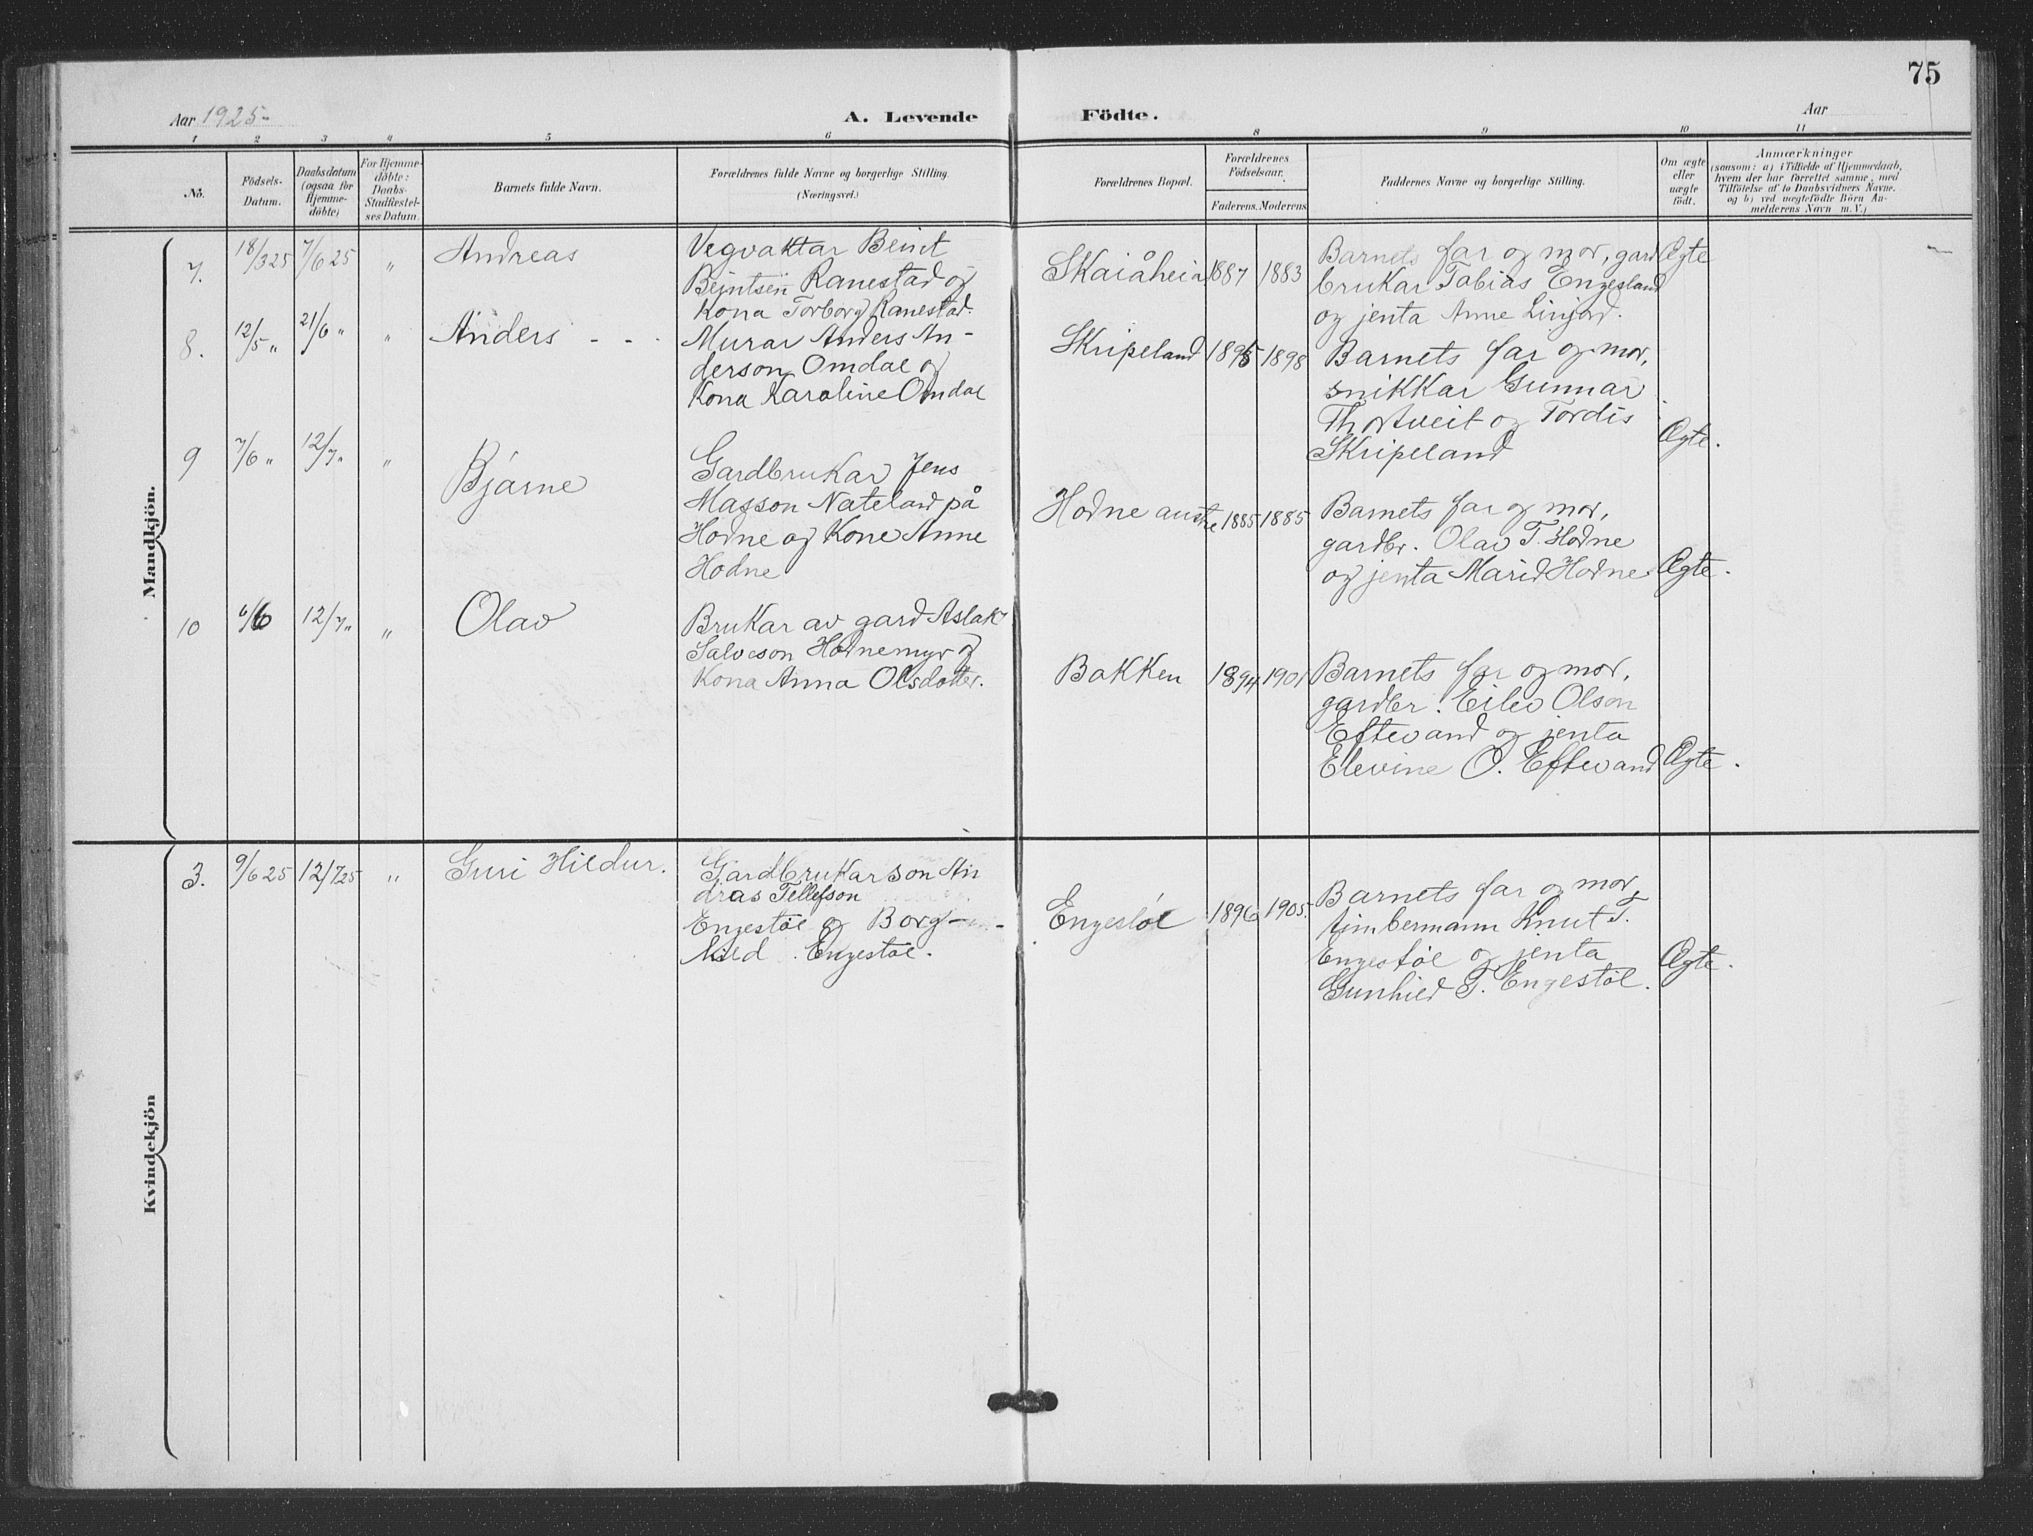 75
Aar 1925-
A. Levende Födte.
Aar
1 2 3 4 5 6 8 9 10 11
No.
Födsels-
Datum.
Daabsdatum
(ogsaa for
Hjemme-
döbte)
For Hjemme-
döbte:
Daabs-
Stadfæstel-
ses Datum.
Barnets fulde Navn.
Forældrenes fulde Navne og borgerlige Stilling.
(Næringsvei.)
Forældrenes Bopæl.
Forældrenes
Födselsaar.
Faderens. Moderens.
Faddernes Navne og borgerlige Stilling.
Om ægte
eller
uægte
født.
Anmærkninger
(saasom: a) i Tilfælde af Hjemmedaab,
hvem der har forrettet samme, med
Tilføielse af to Daabsvidners Navne.
og b) ved uægtefødte Börn An-
melderens Navn m. V.)
Mandkjön.
7. 18/3 25 7/6 25 " Andreas
Vegvaktar Beint
Beintsen Ranestad og
Kona Torborg Ranestad.
Skaiåheia 1887 1883
Barnets far og mor, gard
brukar Tobias Engesland
og jenta Anne
Ægte
8. 12/5 " 21/6 " " Anders - - -
Murar Anders An-
derson Omdal og
Kona Karoline Omdal
Skripeland 1895 1898
Barnets far og mor,
snikkar Gunnar
Thortveit og Tordis
Skripeland
Ægte.
9 7/6 " 12/7 " " Bjarne
Gardbrukar Jens
Masson Nateland på
Hodne og Kone Anne
Hodne
Hodne austre 1885 1885
Barnets far og mor,
gardbr. Olav T. Hodne
og jenta Marid Hodne
Ægte.
10 6/6 12/7 " " Olav
Brukar av gard Aslak
Salveson Hodnemyr og
Kona Anna Olsdotter.
Bakken 1894 1901
Barnets far og mor,
gardbr. Eilev Olson
Eftevand og jenta
Elevine O. Eftevand
Ægte.
Kvindekjön
3. 9/6 25 12/7 25 " Guri Hildur.
Gardbrukarson An
dras Tellefson
Engestøl og Borg-
hild Engestøl.
Engestøl 1896 1905.
Barnets far og mor,
timbermann Knut T.
Engestøl og jenta
Gunhild T. Engestøl.
Ægte.